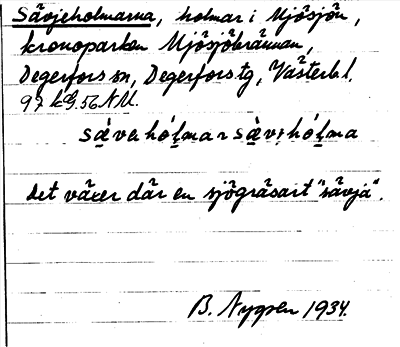 Sävjeholmarna, holmar i Mjösjön,
kronoparken Mjösjöbrännan,
Degerfors sn, Degerfors tg, Västerb.l.
97 kG.56 N.U.
sävehólmar sävehólma
det växer där en sjögräsart "sävja".
B. Nygren 1934.